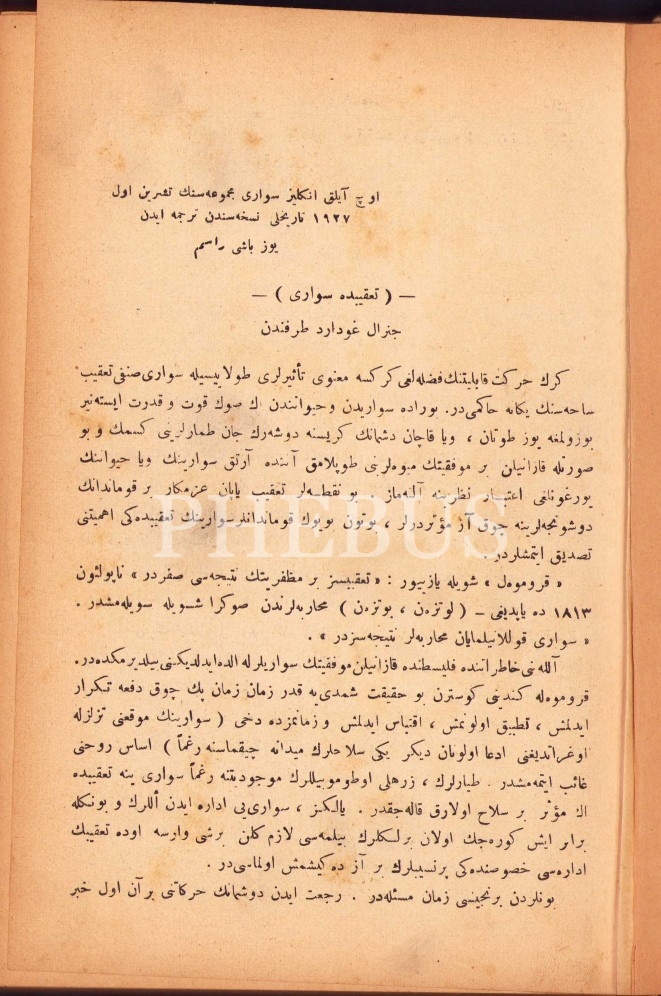 اوچ آیلق انكلیز سواری مجموعه‌سنك تشرین اول
۱۹۲۷ تاریخلی نسخه‌سندن ترجمه ایدن
یوز باشی راسم
— ( تعقیبده سواری ) —
جنرال غودارد طرفندن
كرك حركت قابلیتنك فضله‌لغی كركسه معنوی تأثیرلری طولاییسیله سواری صنفی تعقیب
ساحه‌سنك یكانه حاكمی در. بوراده سواریدن و حیوانندن اك صوك قوت و قدرت ایسته‌نیر
بوزولمغه یوز طوتان ، ویا قاچان دشمانك كریسنه دوشه‌رك جان طمارلرینی كسمك و بو
صورتله قازانیلان بر موفقیتك میوه‌لرینی طوپلامق آننده آرتق سوارینك ویا حیواننك
یورغونلغی اعتبار نظرینه آلنه‌ماز بو نقطه‌لر تعقیب یاپان عزمكار بر قوماندانك
دوشونجه‌لرینه چوق آز مؤثردرلر ، بوتون بویوك قوماندانلر سوارینك تعقیبده‌كی اهمیتنی
تصدیق ایتمشلردر.
« قروموه‌ل » شویله یازییور : « تعقیبسز بر مظفریتك نتیجه‌سی صفردر » ناپولئون
۱۸۱۳ ده یاپدیغی – ( لوتزه‌ن ، بوتزه‌ن ) محاربه‌لرندن صوكرا شویله سویله‌مشدر.
« سواری قوللانیلمایان محاربه‌لر نتیجه‌سزدر » .
آللنه‌نی خاطراتنده فلیسطنده قازانیلان موفقیتك سواریلرله الده ایدلدیكنی بیلدیرمكده‌در.
قروموه‌له كندینی كوسترن بو حقیقت شمدی‌یه قدر زمان زمان پك چوق دفعه تكرار
ایدلمش ، تطبیق اولونمش ، اقتباس ایدلمش و زمانمزده دخی ( سوارینك موقعنی تزلزله
اوغراتدیغی ادعا اولونان دیكر یكی سلاحلرك میدانه چیقماسنه رغماً ) اساس روحنی
غائب ایتمه‌مشدر . طیارلرك ، زرهلی اوطوموبیللرك موجودیتنه رغماً سواری ینه تعقیبده
اك مؤثر بر سلاح اولارق قاله‌جقدر . یالكز ، سواری‌یی اداره ایدن أللرك و بونكله
برابر ایش كوره‌جك اولان برلكلرك بیلمه‌سی لازم كلن برشی وارسه اوده تعقیبك
اداره‌سی خصوصنده‌كی پرنسیبلرك بر آز ده‌كیشمش اولماسی‌در .
بونلردن برنجیسی زمان مسئله‌در . رجعت ایدن دوشمانك حركاتنی برآن اول خبر
PHEBUS